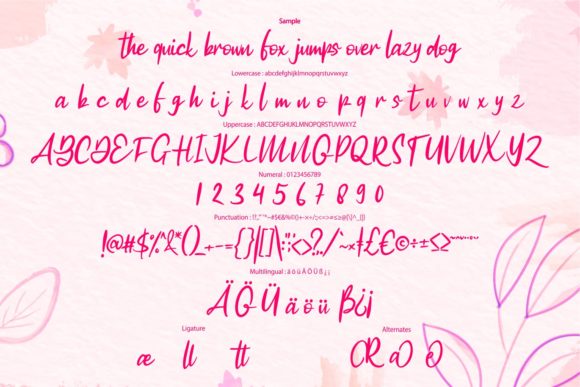 Sample
the quick brown fox jumps over lazy dog
Lowercase : abcdefghijklmnopqrstuvwxyz
a b c d e f g h i j k l m n o p q r s t u v w x y z
Uppercase : ABCDEFGHIJKLMNOPQRSTUVWXYZ
ABCDEFGHIJKLMNOPQRSTUVWXYZ
Numeral : 0123456789
1 2 3 4 5 6 7 8 9 0
Punctuation :
!@#$%^&*()_+-={}|[]\:";'<>?,./`~×±£€©÷±≤≥
Multilingual : ä ö ü Ä Ö Ü ß ¿ ¡
Ä Ö Ü ä ö ü ß ¿ ¡
Ligature
Alternates
æ ll tt